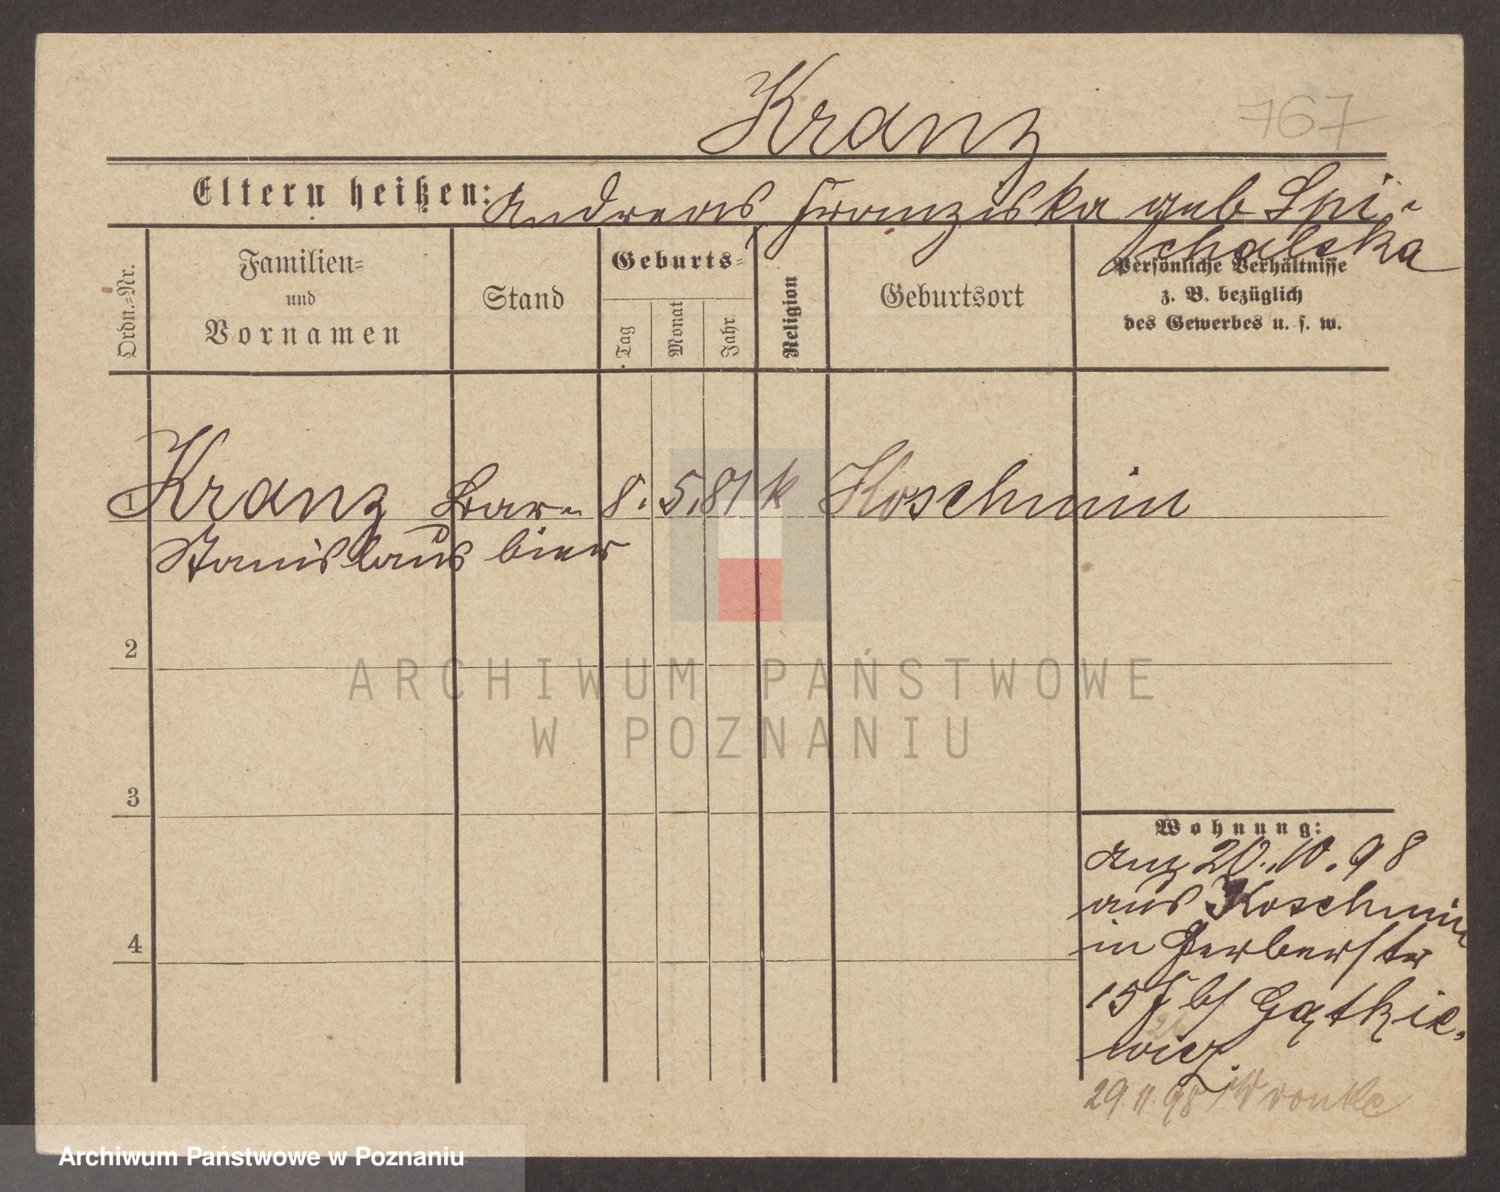 Kranz
767
Eltern heißen: Andreas, Franziska geb Spi-
chalska
Ordn.-Nr.
Familien-
und
Vornamen
Stand
Geburts-
Tag
Monat
Jahr
Religion
Geburtsort
Persönliche Verhältnisse
z. B. bezüglich
des Gewerbes u. s. w.
1 Kranz Bar- 8. 5. 81 k Koschmin
Stanislaus bier
2
3
4
ARCHIWUM PAŃSTWOWE
W POZNANIU
Wohnung:
Anz 20. 10. 98
aus Koschmin
in Gerberstr
15 b/ Gątkie-
wicz
29. 11. 98 Wronke
Archiwum Państwowe w Poznaniu